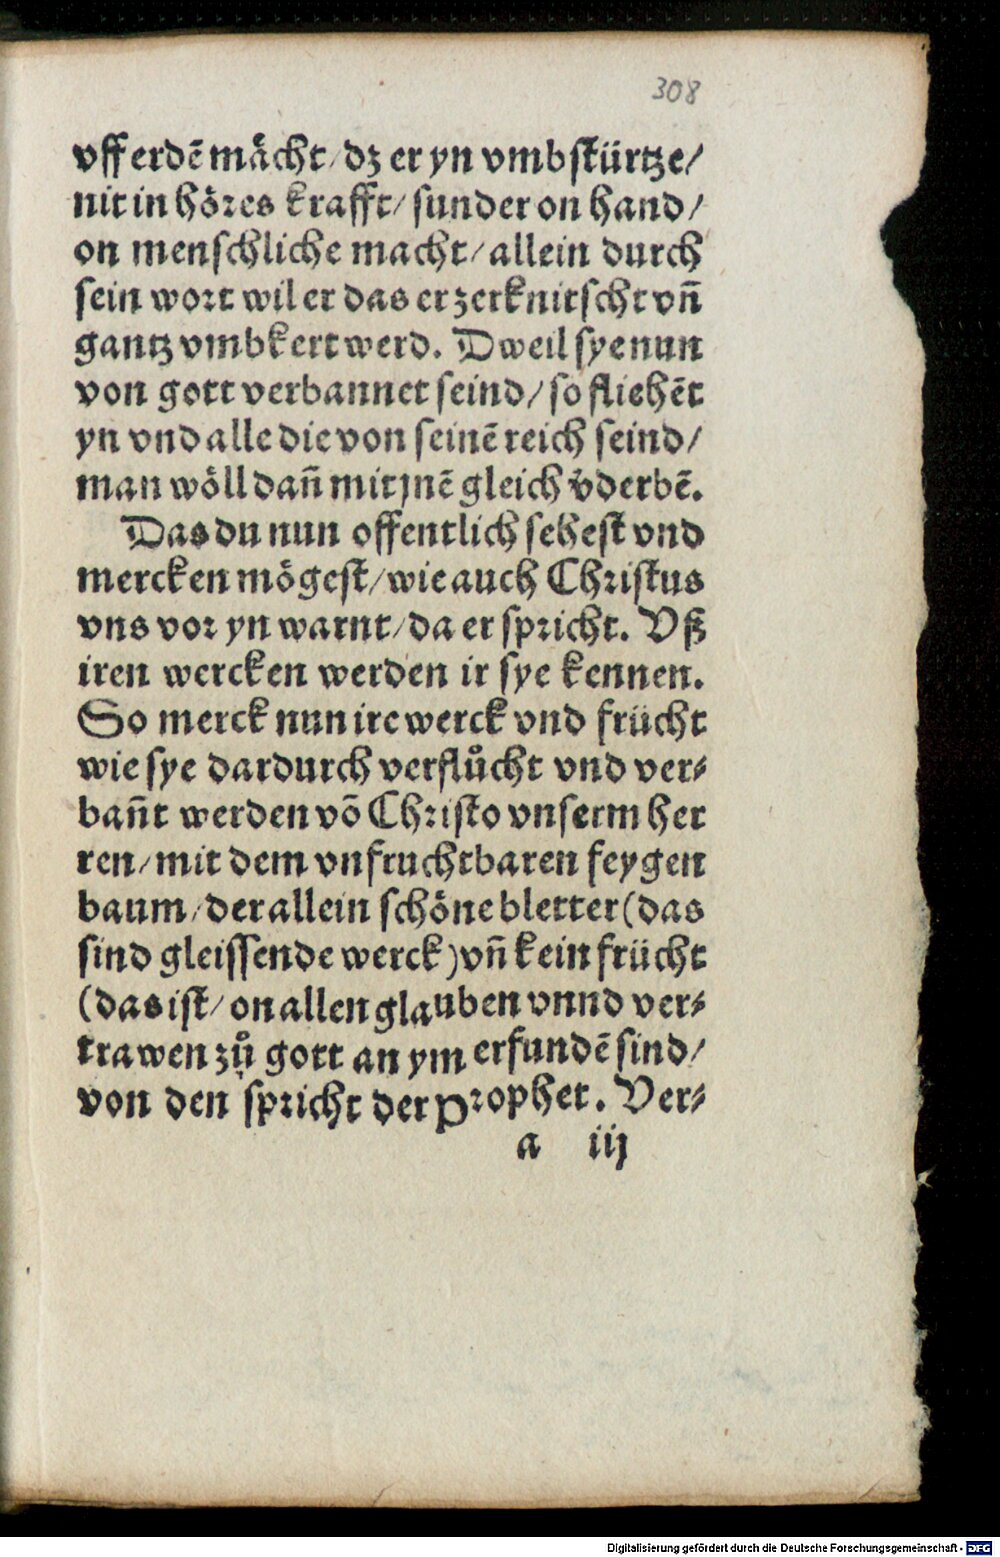 308
vff erdē mächt / dz er yn vmbstürtze /
nit in höres krafft / sunder on hand /
on menschliche macht / allein durch
sein wort wil er das er zerknitscht vñ
gantz vmbkert werd. Dweil sye nun
von gott verbannet seind / so fliehēt
yn vnd alle die von seinē reich seind /
man wöll dañ mit jnē gleich v̈derbē.
Das du nun offentlich sehest vnd
mercken mögest / wie auch Christus
vns vor yn warnt / da er spricht. Vß
iren wercken werden ir sye kennen.
So merck nun ire werck vnd frücht
wie sye dardurch verflůcht vnd ver⸗
bañt werden vō Christo vnserm her
ren / mit dem vnfruchtbaren feygen
baum / der allein schöne bletter (das
sind gleissende werck) vñ kein frücht
(das ist / on allen glauben vnnd ver⸗
trawen zů gott an ym erfundē sind /
von den spricht der Prophet. Ver⸗
a iij
Digitalisierung gefördert durch die Deutsche Forschungsgemeinschaft - DFG